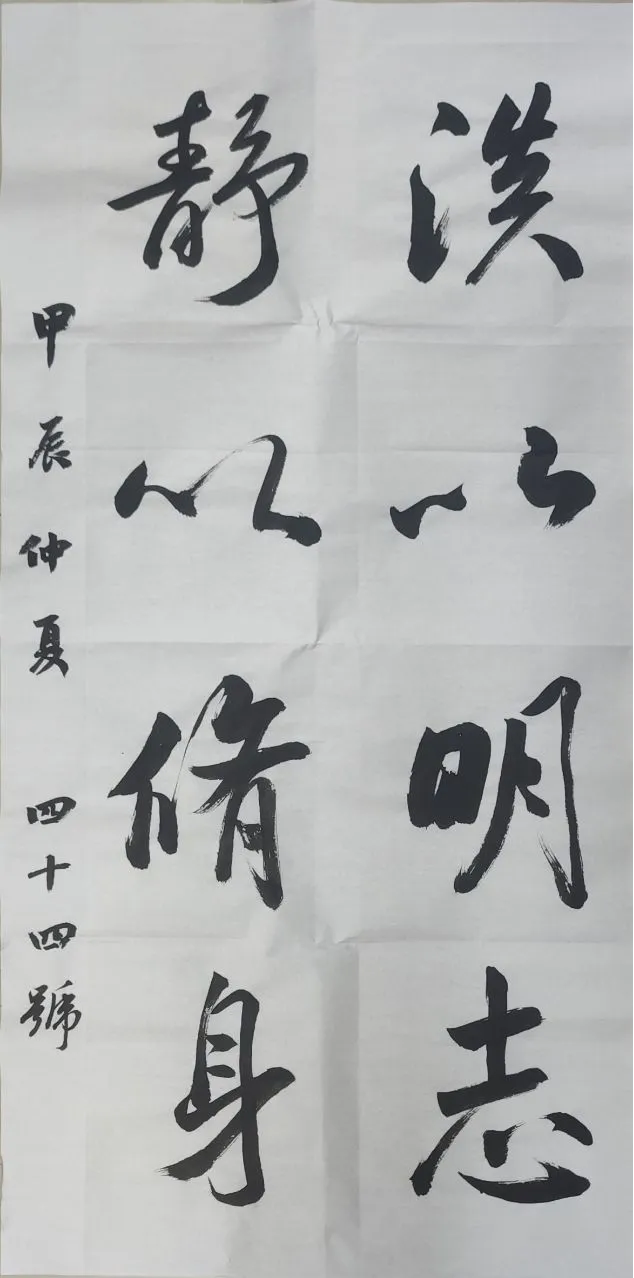 淡以明志
静以脩身
甲辰仲夏 四十四號